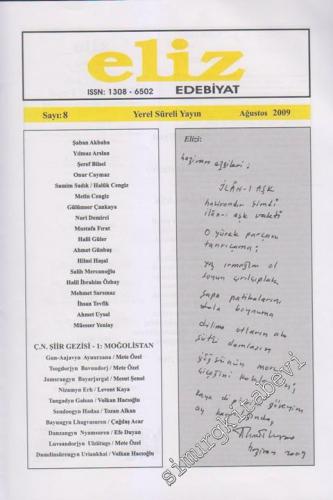 eliz
ISSN: 1308 - 6502 EDEBİYAT
Sayı: 8 Yerel Süreli Yayın Ağustos 2009
Şaban Akbaba
Yılmaz Arslan
Şeref Bilsel
Onur Caymaz
Samim Sadık / Haluk Cengiz
Metin Cengiz
Gülümser Çankaya
Nuri Demirci
Mustafa Fırat
Halil Güler
Ahmet Günbaş
Hilmi Haşal
Salih Mercanoğlu
Halil İbrahim Özbay
Mehmet Sarsmaz
İhsan Tevfik
Ahmet Uysal
Müesser Yeniay
Ç.N. ŞİİR GEZİSİ - 1: MOĞOLİSTAN
Gun-Aajavyn Ayuurzana / Mete Özel
Tsogdorjyn Bavuudorj / Mete Özel
Jamsrangyn Bayarjargal / Mesut Şenol
Nizamya Erh / Levent Kaya
Tangadyn Galsan / Volkan Hacıoğlu
Sendoogin Hadaa / Tozan Alkan
Bayuugyn Lhagvasuren / Çağdaş Acar
Danzangyn Nyamsuren / Efe Duyan
Luvsandorjyn Ulziitugs / Mete Özel
Damdinsürengyn Uriankhai / Volkan Hacıoğlu
Elizi:
haziran ezgileri;
İLÂN-I AŞK
hazirandır şimdi
ilân-ı aşk vakti
o yürek parçam
tanrıçama;
yaz ırmağım ol
sonun çırılçıplak
sapa patikaların
boyunca
otların
sütü damlasın
göğsünün
haziran 2009
simurgkitabevi.com